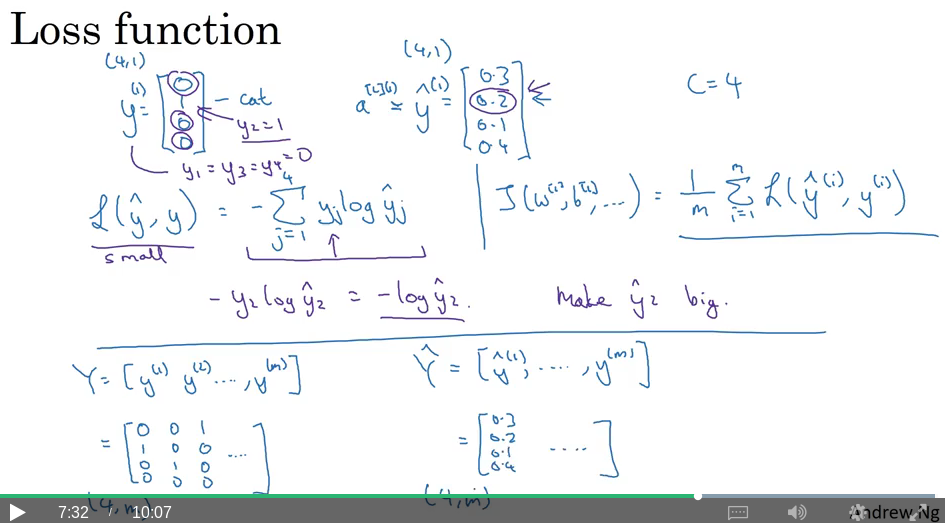 Loss function
(4,1)
y^(1) = [0 1 0 0] - cat
y2=1
y1 = y3 = y4 = 0
(4,1)
a^[L](1) = ŷ^(1) = [0.3 0.2 0.1 0.4]
C=4
L(ŷ, y) = - Σ_{j=1}^{4} yj log ŷj
small
J(w^[1], b^[1], ....) = 1/m Σ_{i=1}^{m} L(ŷ^(i), y^(i))
- y2 log ŷ2 = - log ŷ2.
Make ŷ2 big.
Y = [y^(1) y^(2) ...., y^(m)]
Ŷ = [ŷ^(1), ...., y^(m)]
= [0 0 1
1 0 0 ....
0 1 0
0 0 0]
= [0.3
0.2
0.1 ....
0.4]
(4,m)
(4,m)
7:32 / 10:07
Andrew Ng